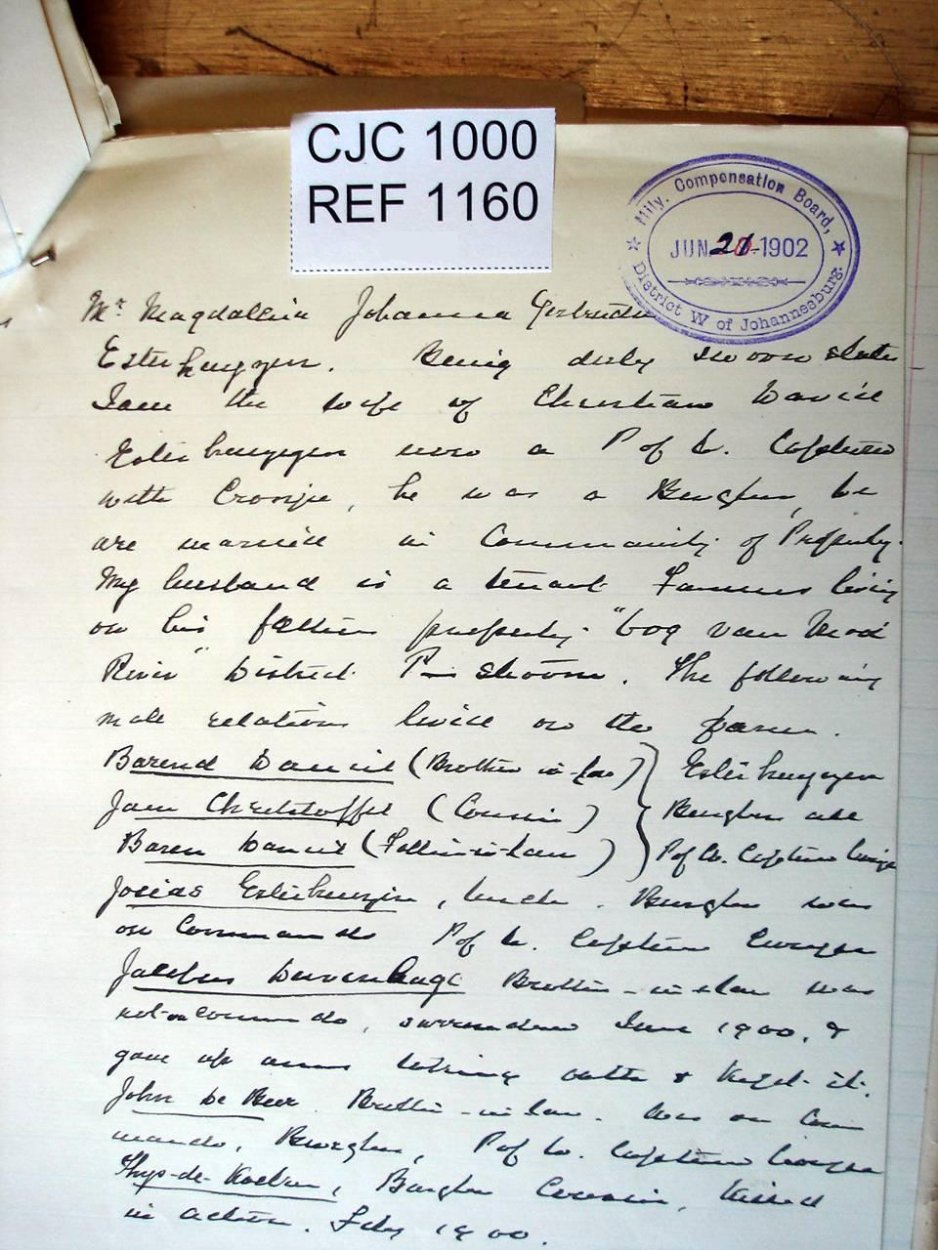 CJC 1000
REF 1160
★ Mily. Compensation Board, ★
JUN 21 1902
District W of Johannesburg.
Mrs Magdallina Johanna Gertruda
Esterhuyzen. Being duly sworn states
I am the wife of Christian David
Esterhuyzen now a P of W. Captured
with Cronje, he was a Burgher, we
are married in Community of Property.
My husband is a tenant Farmer living
on his fathers property "Oog van Mooi
River" District P— stroom. The following
male relations lived on the farm.
Barend Daniel (Brother in-law) } Esterhuyzen
Jan Christoffel (Cousin) } Burghers all
Baren Daniel (Father-in-Law) } P of W. Capture Cronje
Josias Esterhuyzen, Uncle. Burgher was
on Commando P of W. Capture Cronje
Jacobus Davenhage Brother-in-law was
not on Commando, surrendered June 1900, &
gave up arms taking oath & kept it.
John de Beer. Brother-in-law. Was on Com
mando, Burgher, P of W. Capture Cronje
Thys-de- Burgher Cousin, Killed
in action. Feby 1900.